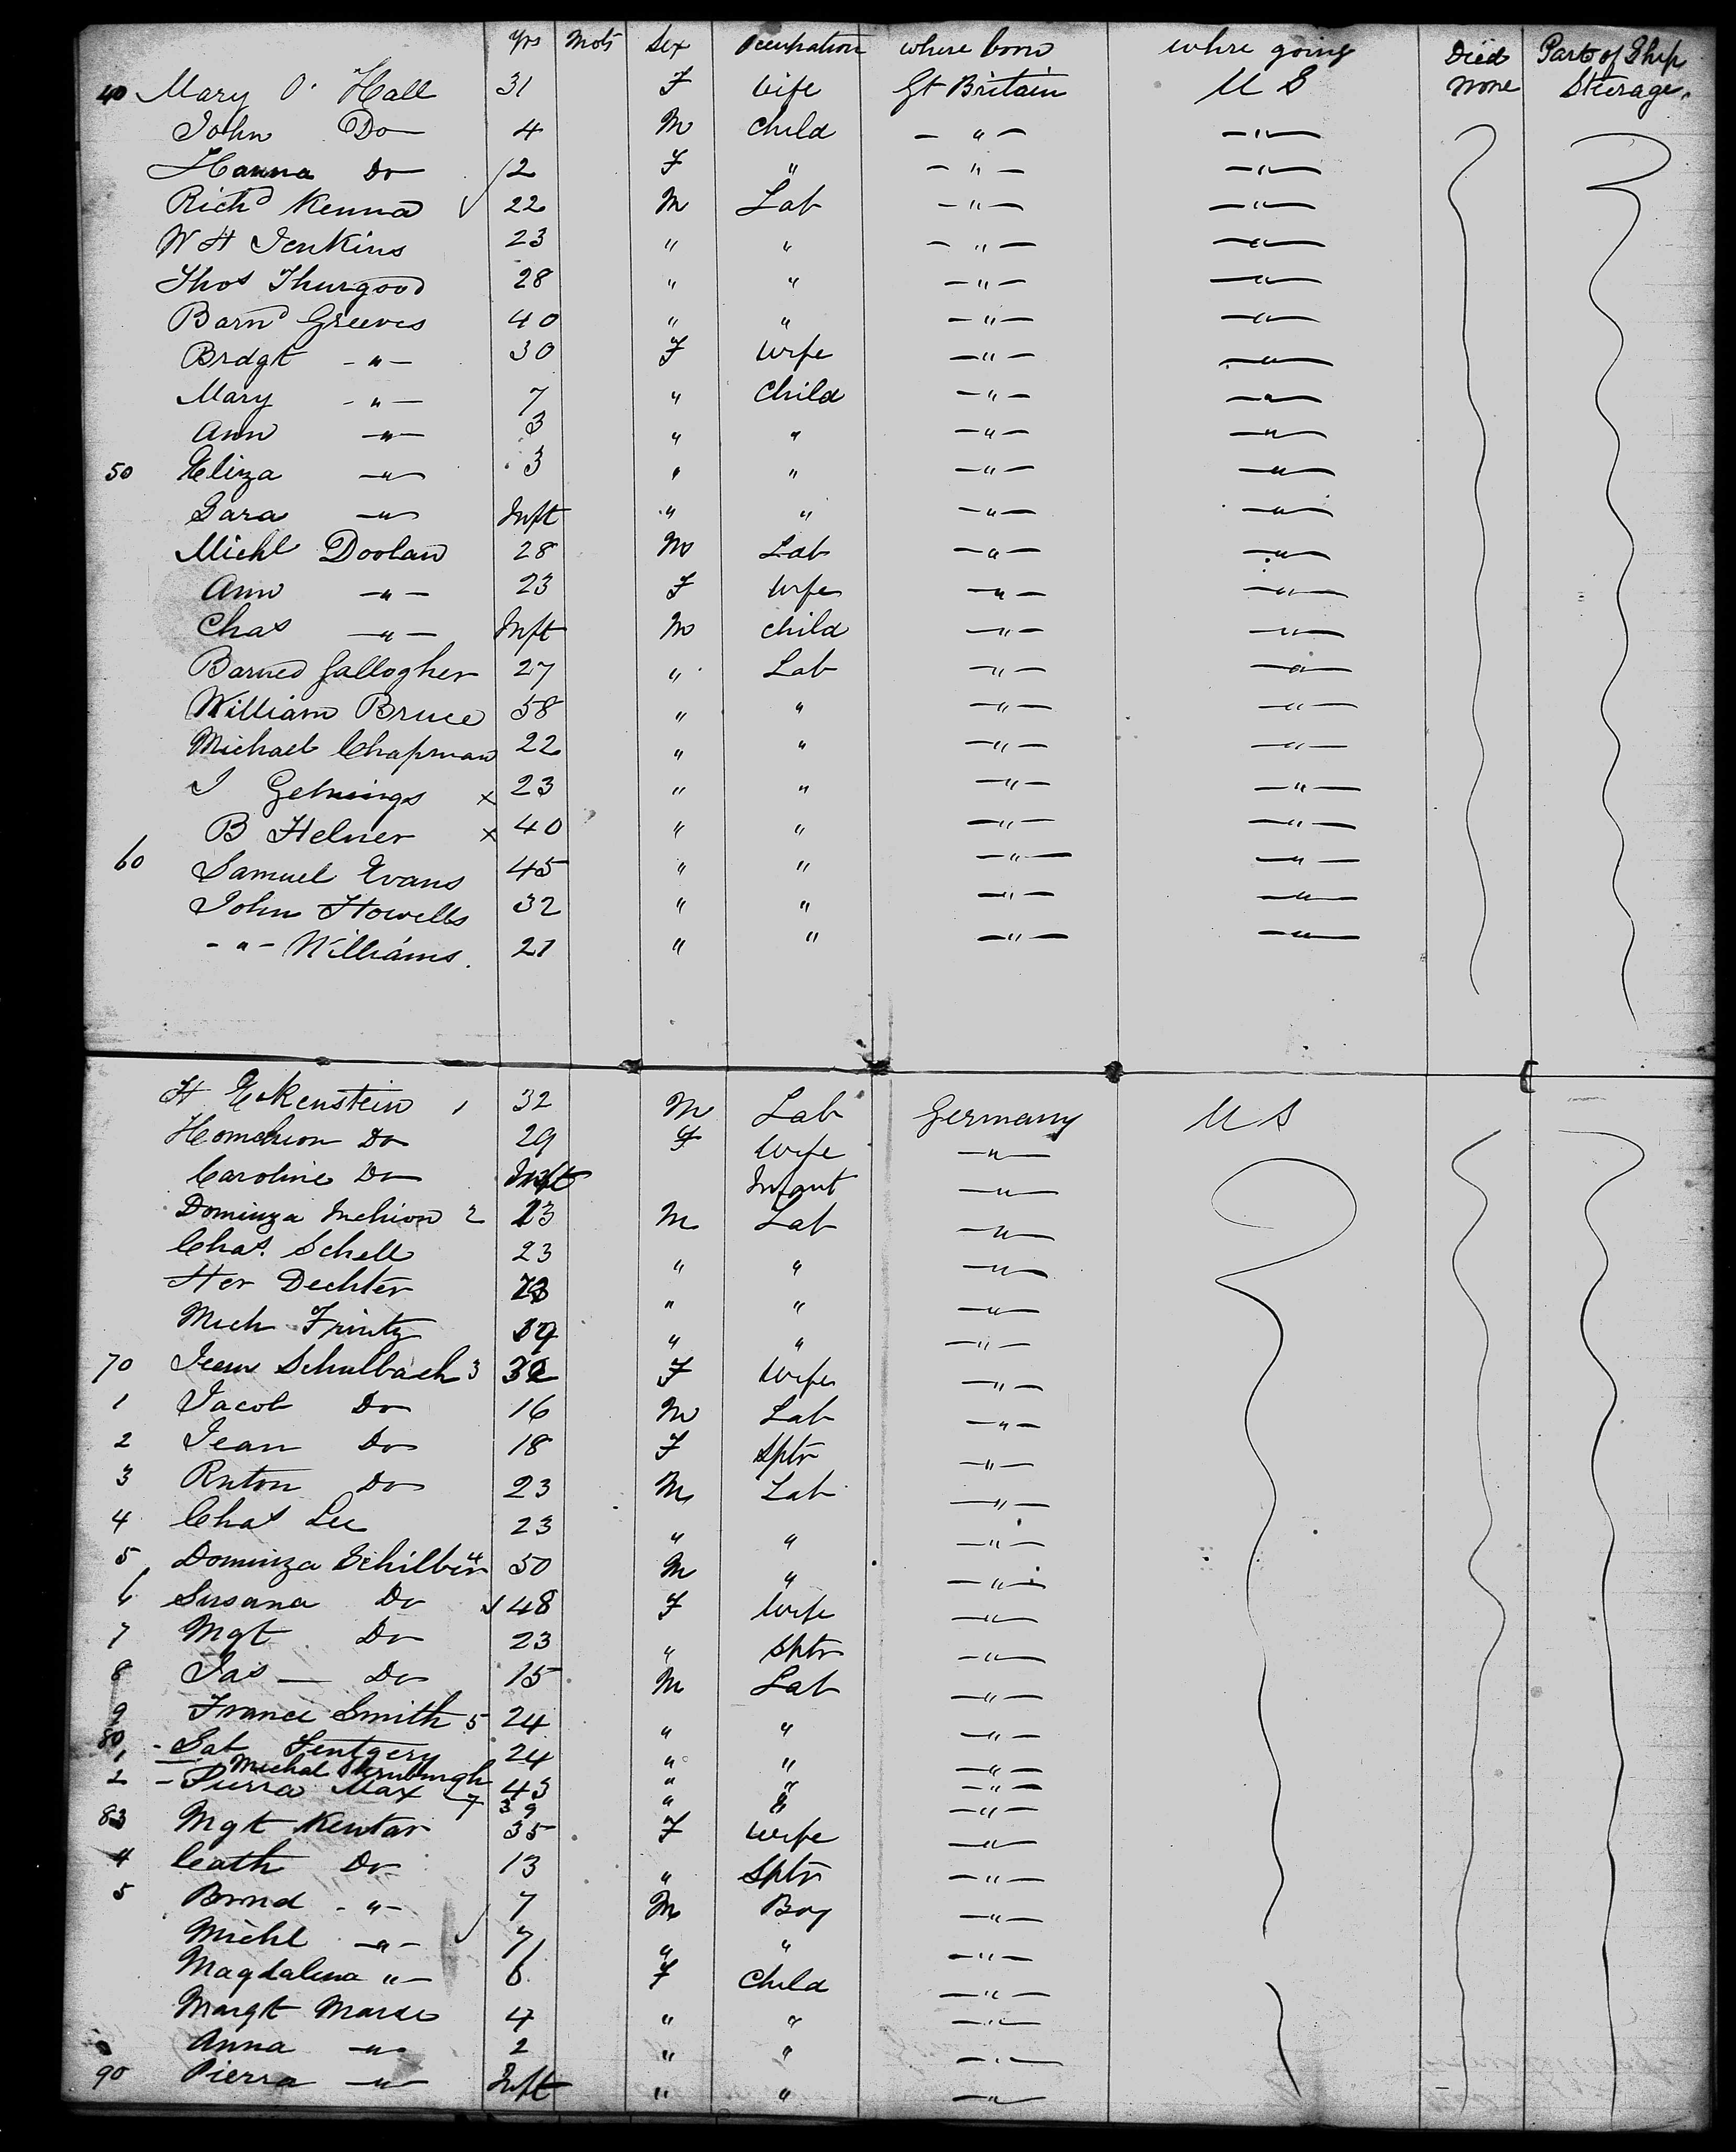 Yrs Mots Sex Occupation where born where going Died Part of Ship
40 Mary O' Hall 31 F Wife Gt Britain U S None Steerage.
John Do 4 M Child - " - - " -
Hanna Do 2 F " - " - - " -
Richd Kenna 22 M Lab - " - - " -
W H Jenkins 23 " " - " - - " -
Thos Thurgood 28 " " - " - - " -
Barnd Greeves 40 " " - " - - " -
Brdgt - " - 30 F Wife - " - - " -
Mary - " - 7 " Child - " - - " -
Ann - " - 3 " " - " - - " -
50 Eliza - " - 3 " " - " - - " -
Sara - " - Inft " " - " - - " -
Michl Doolan 28 M Lab - " - - " -
Ann - " - 23 F Wife - " - - " -
Chas - " - Inft M child - " - - " -
Barned Gallogher 27 " Lab - " - - " -
William Bruce 58 " " - " - - " -
Michael Chapman 22 " " - " - - " -
J x 23 " " - " - - " -
B Helner x 40 " " - " - - " -
60 Samuel Evans 45 " " - " - - " -
John Howells 32 " " - " - - " -
- " - Williams. 21 " " - " - - " -
H Eckenstein 1 32 M Lab Germany U S
Do 29 F Wife - " -
Caroline Do Inft Infant - " -
Dominza 2 23 M Lab - " -
Chas. Schell 23 " " - " -
Her Dechter " " - " -
Mich Frintz " " - " -
70 Jean Schulbach 3 32 F Wife - " -
1 Jacob Do 16 M Lab - " -
2 Jean Do 18 F Sptr - " -
3 Anton Do 23 M Lab - " -
4 Chas Lee 23 " " - " -
5 Dominza 50 M " - " -
6 Susana Do 48 F Wife - " -
7 Mgt Do 23 " Sptr - " -
8 Jas Do 15 M Lab - " -
9 France Smith 5 24 " " - " -
80 - Sab 24 " " - " -
1 - Michal 43 " " - " -
2 - Pierra Max 7 39 " " - " -
83 Mgt Kentar 35 F Wife - " -
4 Cath Do 13 " Sptr - " -
5 Brnd - " - 7 M Boy - " -
Michl - " - 7 " " - " -
Magdalena " - 6 F Child - " -
Margt 4 " " - " -
Anna - " - 2 " " - " -
90 Pierra - " - Inft " " - " -